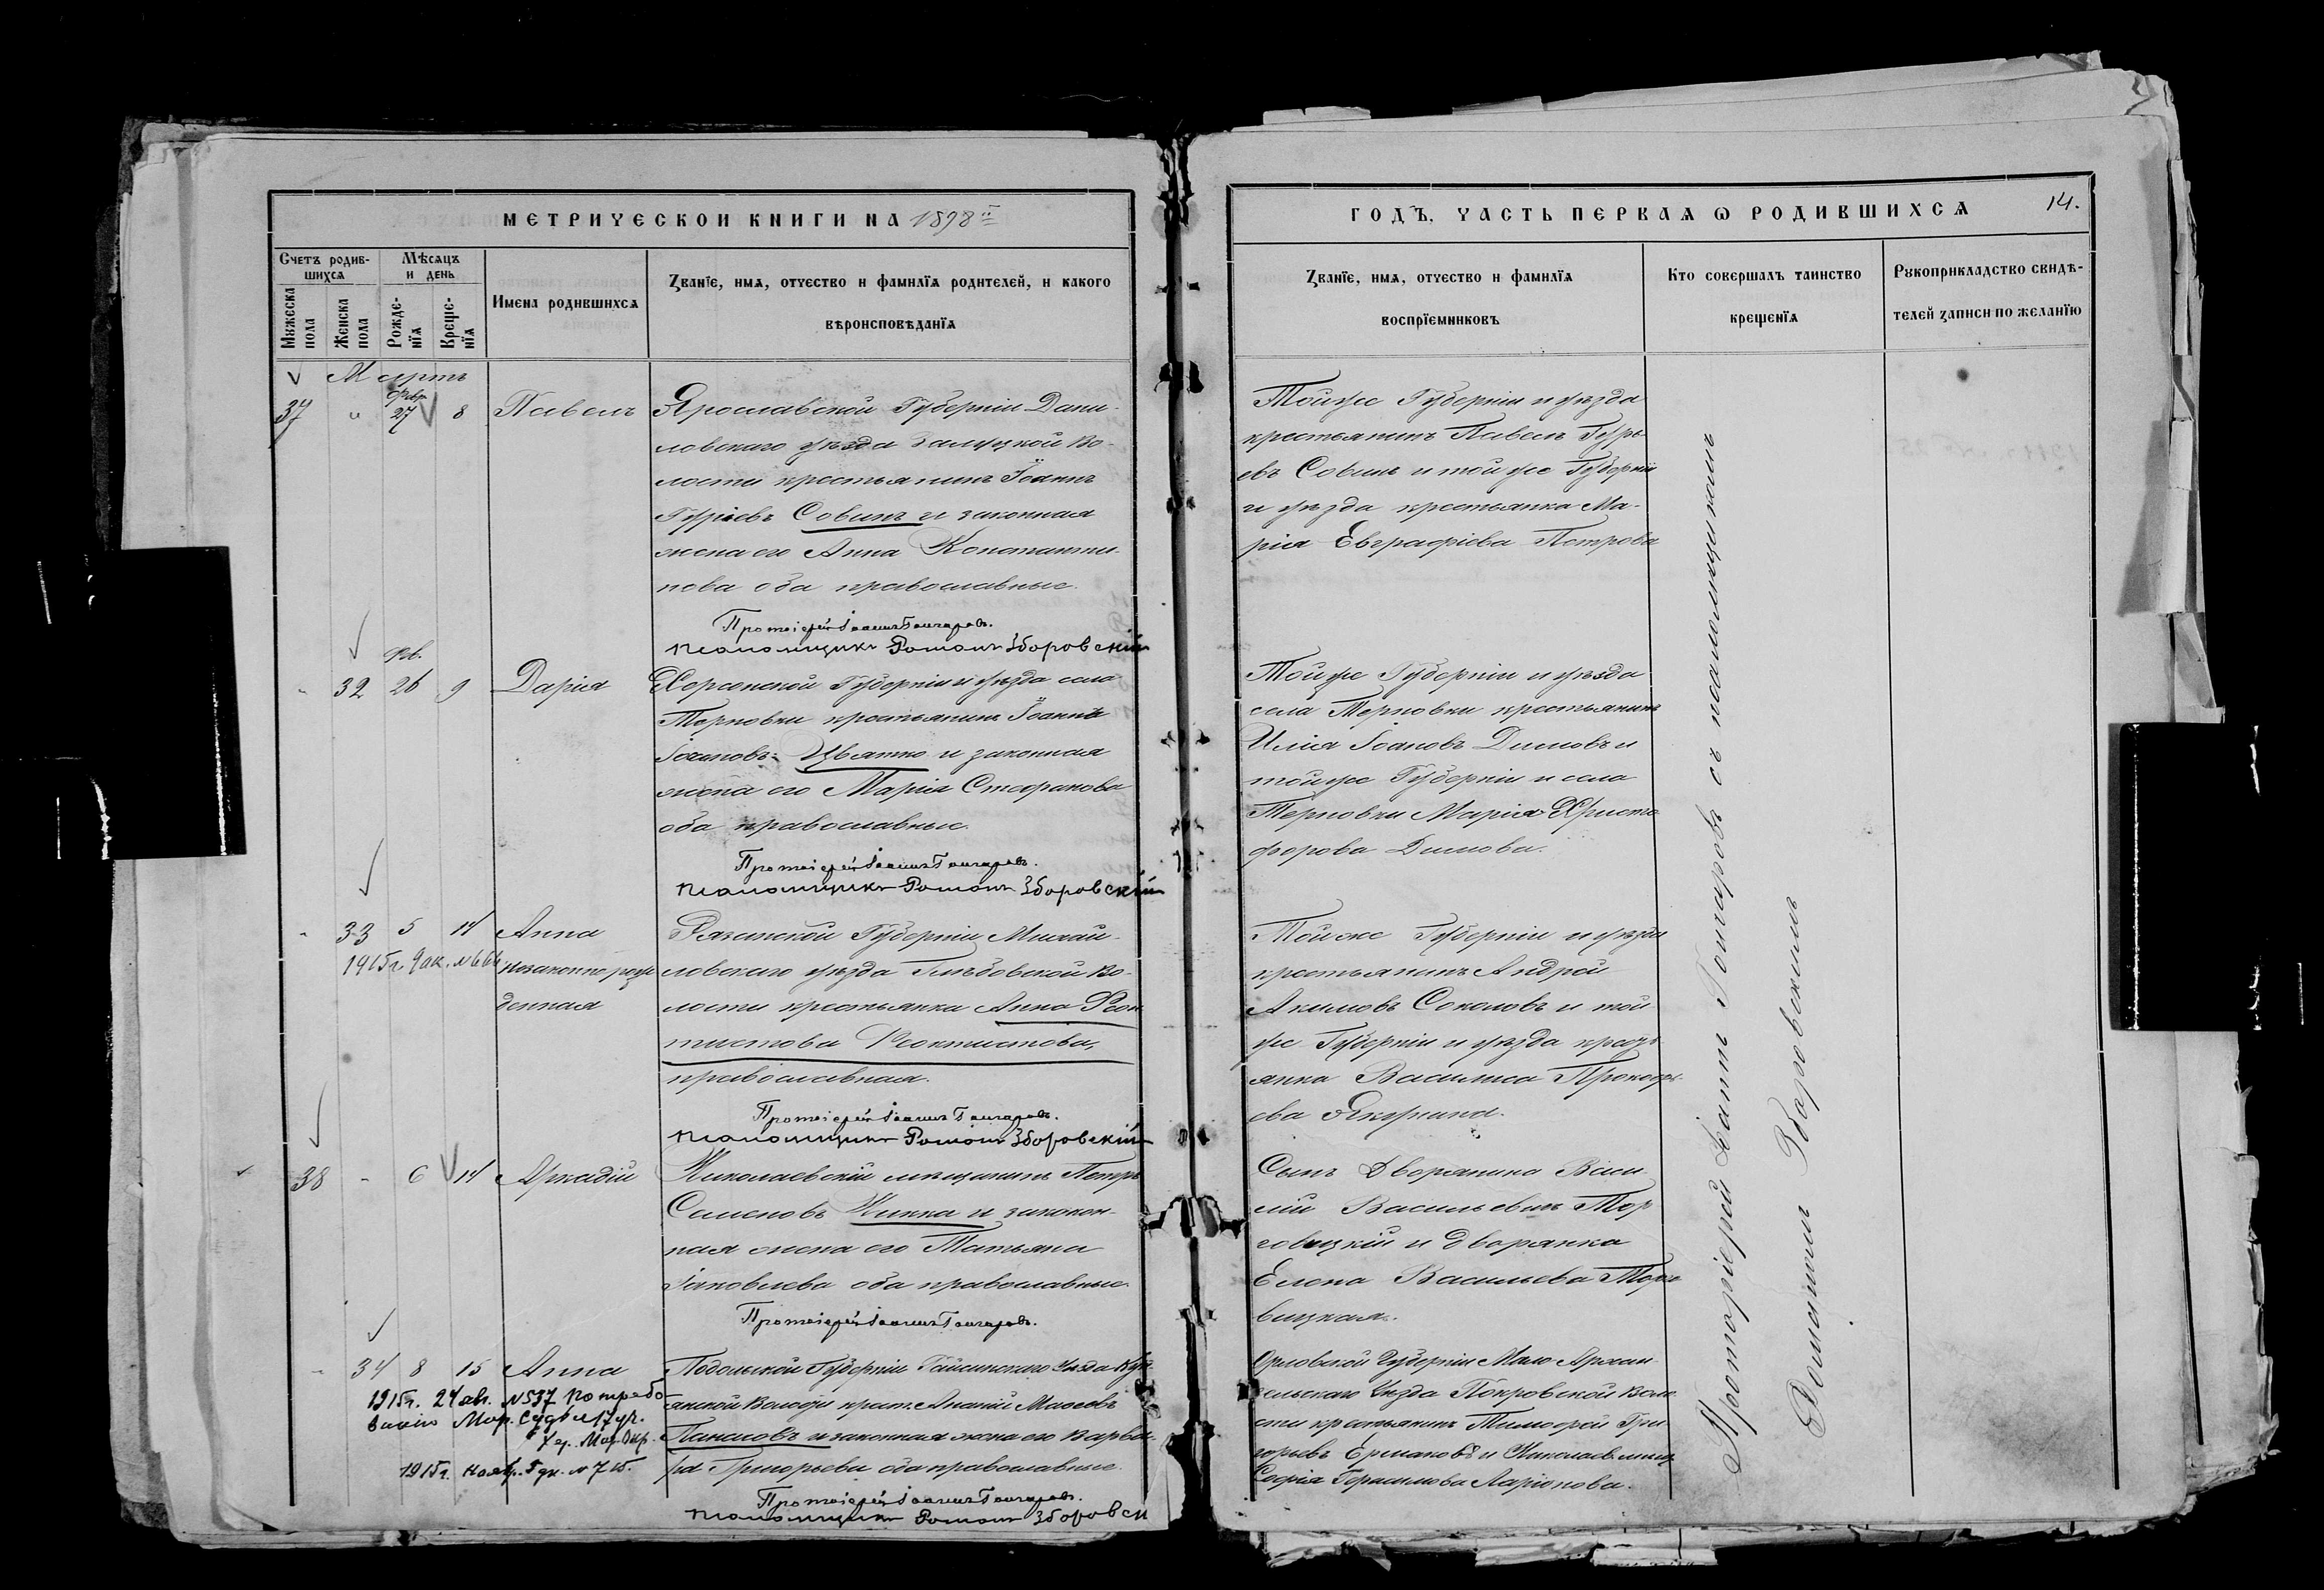 МЕТРИЧЕСКОЙ КНИГИ НА 1898й
Счетъ родив-
шихся
Мѣсяцъ
и день
Мужеска
пола
Женска
пола
Рожде-
нїя
Креще-
нїя
Имена родившихся
Званїе, имя, отчество и фамилїя родителей, и какого
вѣроисповѣданїя
Мартъ
37 " Февр. 27 8 Павелъ
Ярославской Губерніи Дани-
ловскаго уѣзда Во-
лости крестьянинъ Іоаннъ
Гуріевъ Совинъ и законная
жена его Анна Константи-
нова оба православные.
Протоіерей Іоаннъ Гончаровъ.
Псаломщикъ Романъ Зборовскій
- 32 Фев. 26 9 Дарія
Херсонской Губерніи и уѣзда села
Терновки крестьянинъ Іоаннъ
Іоановъ Цвятко и законная
жена его Марія Стефанова
оба православные.
Протоіерей Іоаннъ Гончаровъ.
Псаломщикъ Романъ Зборовскій
- 33 5 14 Анна
1915г. 9 ак. №666. незаконно рож
денная
Рязанской Губерніи Михай-
ловскаго уѣзда Глѣбовской Во-
лости крестьянка Анна Феок
тистова Феоктистова,
православная.
Протоіерей Іоаннъ Гончаровъ.
Псаломщикъ Романъ Зборовскій
38 - 6 14 Аркадій
Николаевскій мѣщанинъ Петръ
Семеновъ и законон-
ная жена его Татьяна
Іаковлева оба православные.
Протоіерей Іоаннъ Гончаровъ.
- 34 8 15 Анна
1915г. 24 авг. №537 по требо
ванію Мир. Судьи 17 уч.
Хер. Мир. Окр.
1915г. Нояб. 5 дн. №715.
Подольской Губерніи Гайсинскаго уѣзда
Волости крест. Ананій
и законная жена его Варва-
ра Григорьева оба православные.
Протоіерей Іоаннъ Гончаровъ.
Псаломщикъ Романъ Зборовск
ГОДЪ, ЧАСТЬ ПЕРВАЯ Ѡ РОДИВШИХСЯ
14.
Званїе, имя, отчество и фамилїя
воспрїемниковъ
Кто совершалъ таинство
крещенїя
Рукоприкладство свидѣ-
телей записи по желанїю
Тойже Губерніи и уѣзда
крестьянинъ Павелъ Гурь
евъ Совинъ и той же Губерніи
и уѣзда крестьянка Ма-
рія Евграфіева Петрова
Тойже Губерніи и уѣзда
села Терновки крестьянинъ
Илія Іоановъ Димовъ и
тойже Губерніи и села
Терновки Марія Христо
форова Димова.
Тойже Губерніи и уѣзда
крестьянинъ Андрей
Акимовъ Соколовъ и той
же Губерніи и уѣзда кресть
янка Василиса Прокофь-
ева
Сынъ Дворянина Васи
лій Васильевичъ Тор
говицкій и дворянка
Елена Васильева Торго
вицкая.
Орловской Губерніи Мало-Архан-
гельскаго Уѣзда Покровской Воло
сти крестьянинъ Тимофей Гри
горьевъ Ермаковъ и Николаев. мѣщ.
Софія Герасимова Ларіонова.
Протоіерей Іоаннъ Гончаровъ съ псаломщикомъ
Романомъ Зборовскимъ